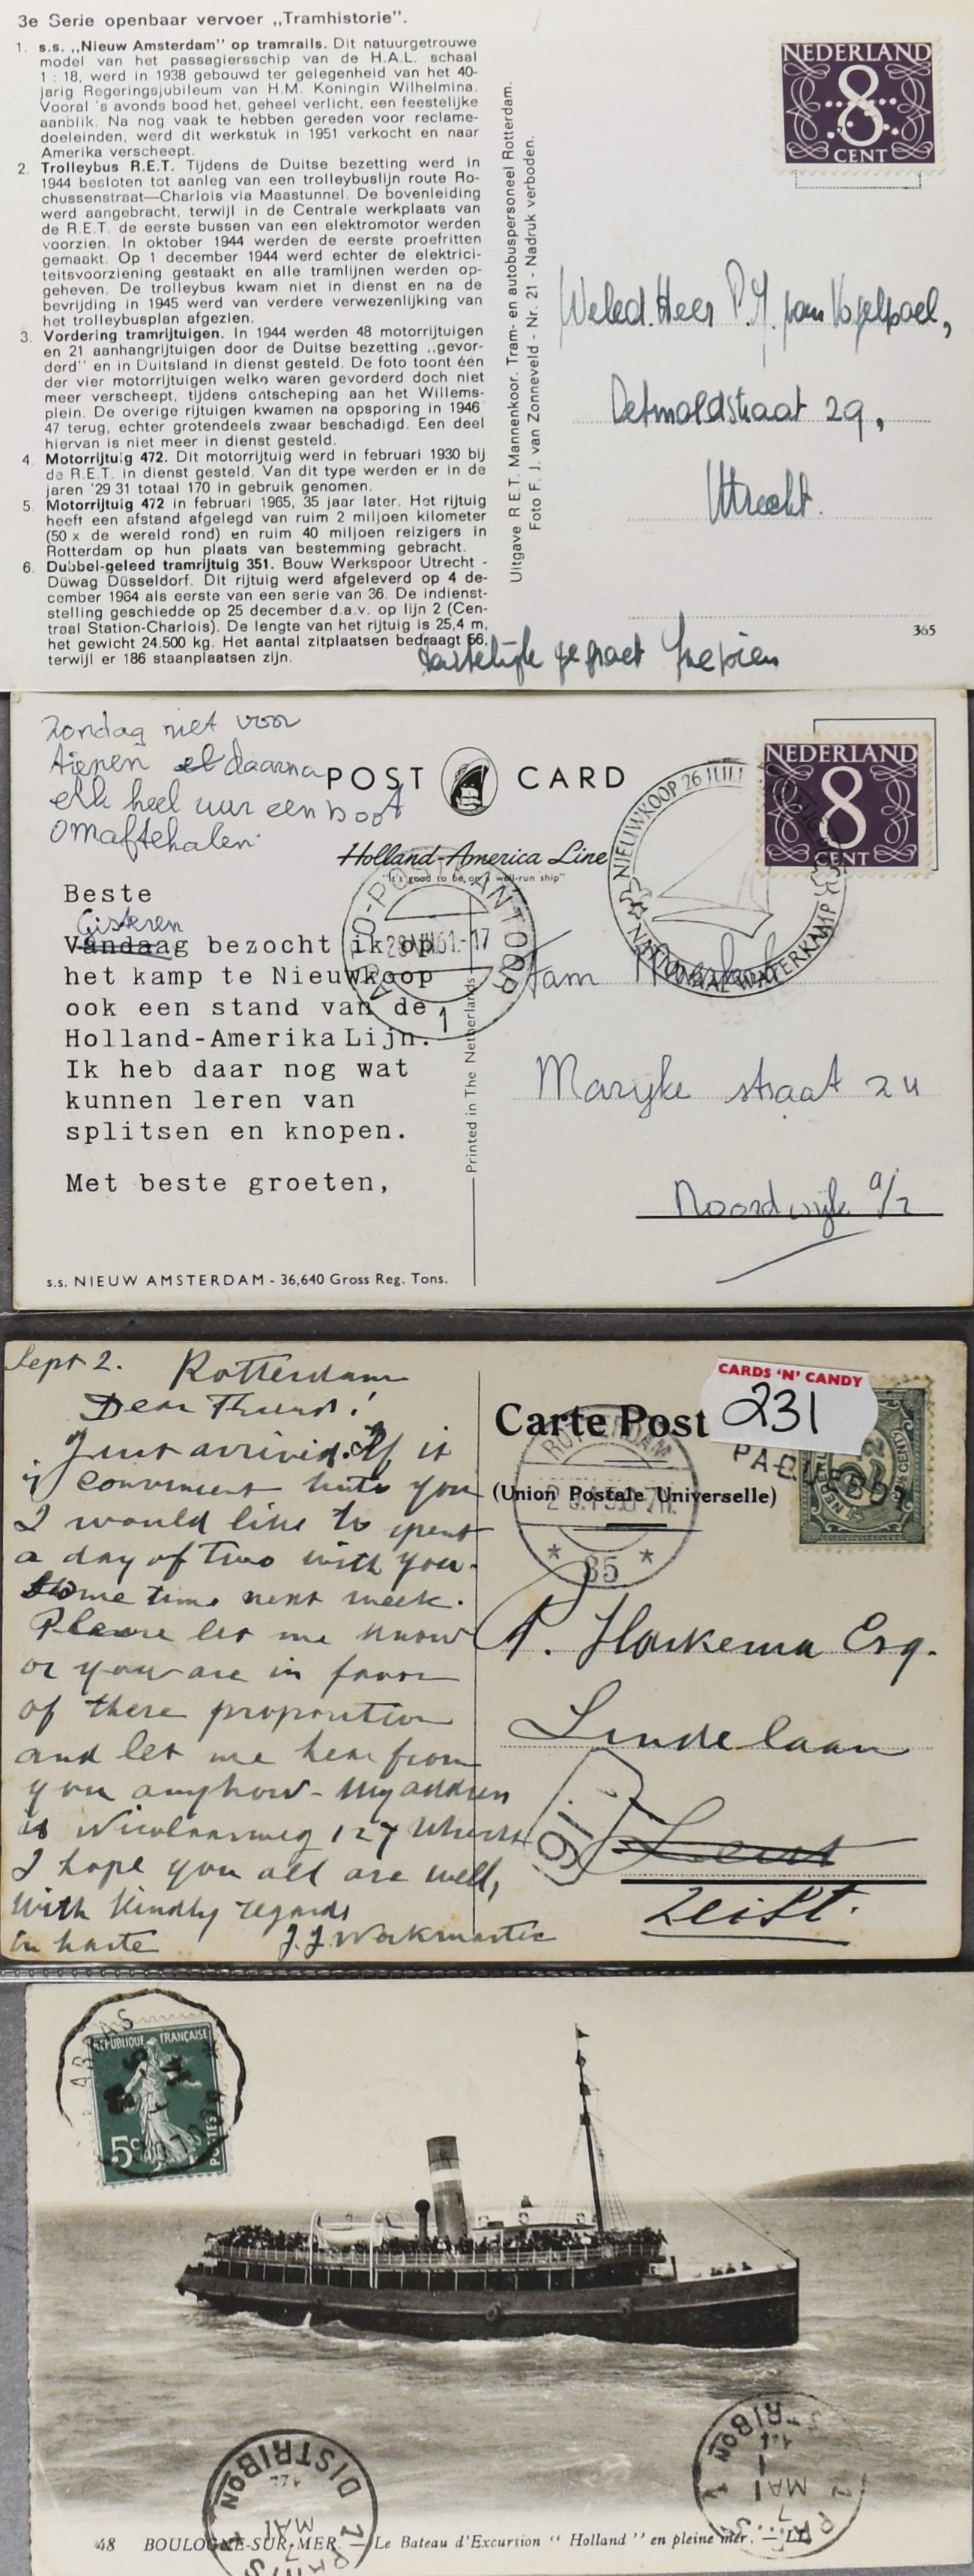 3e Serie openbaar vervoer „Tramhistorie".
1. s.s. „Nieuw Amsterdam" op tramrails. Dit natuurgetrouwe
model van het passagiersschip van de H.A.L. schaal
1 : 18, werd in 1938 gebouwd ter gelegenheid van het 40-
jarig Regeringsjubileum van H.M. Koningin Wilhelmina.
Vooral 's avonds bood het, geheel verlicht, een feestelijke
aanblik. Na nog vaak te hebben gereden voor reclame-
doeleinden, werd dit werkstuk in 1951 verkocht en naar
Amerika verscheept.
2. Trolleybus R.E.T. Tijdens de Duitse bezetting werd in
1944 besloten tot aanleg van een trolleybuslijn route Ro-
chussenstraat—Charlois via Maastunnel. De bovenleiding
werd aangebracht, terwijl in de Centrale werkplaats van
de R.E.T. de eerste bussen van een elektromotor werden
voorzien. In oktober 1944 werden de eerste proefritten
gemaakt. Op 1 december 1944 werd echter de elektrici-
teitsvoorziening gestaakt en alle tramlijnen werden op-
geheven. De trolleybus kwam niet in dienst en na de
bevrijding in 1945 werd van verdere verwezenlijking van
het trolleybusplan afgezien.
3. Vordering tramrijtuigen. In 1944 werden 48 motorrijtuigen
en 21 aanhangrijtuigen door de Duitse bezetting „gevor-
derd" en in Duitsland in dienst gesteld. De foto toont één
der vier motorrijtuigen welke waren gevorderd doch niet
meer verscheept, tijdens ontscheping aan het Willems-
plein. De overige rijtuigen kwamen na opsporing in 1946
47 terug, echter grotendeels zwaar beschadigd. Een deel
hiervan is niet meer in dienst gesteld.
4. Motorrijtuig 472. Dit motorrijtuig werd in februari 1930 bij
de R.E.T. in dienst gesteld. Van dit type werden er in de
jaren '29 31 totaal 170 in gebruik genomen.
5. Motorrijtuig 472 in februari 1965, 35 jaar later. Het rijtuig
heeft een afstand afgelegd van ruim 2 miljoen kilometer
(50 x de wereld rond) en ruim 40 miljoen reizigers in
Rotterdam op hun plaats van bestemming gebracht.
6. Dubbel-geleed tramrijtuig 351. Bouw Werkspoor Utrecht -
Düwag Düsseldorf. Dit rijtuig werd afgeleverd op 4 de-
cember 1964 als eerste van een serie van 36. De indienst-
stelling geschiedde op 25 december d.a.v. op lijn 2 (Cen-
traal Station-Charlois). De lengte van het rijtuig is 25,4 m,
het gewicht 24.500 kg. Het aantal zitplaatsen bedraagt 66,
terwijl er 186 staanplaatsen zijn.
Uitgave R.E.T. Mannenkoor. Tram- en autobuspersoneel Rotterdam.
Foto F. J. van Zonneveld - Nr. 21 - Nadruk verboden.
NEDERLAND
8
CENT
Weled. Heer P.J. van Vogelpoel,
Detmoldstraat 29,
Utrecht.
365
Hartelijk gegroet
Zondag niet voor
tienen daarna
elk heel uur een boot
om af te halen
POST CARD
Holland-America Line
"It's good to be on a well-run ship"
NIEUWKOOP 26 JULI
NATIONAAL WATERKAMP
NEDERLAND
8
CENT
Beste
Gisteren
Vandaag bezocht ik op
het kamp te Nieuwkoop
ook een stand van de
Holland-Amerika Lijn.
Ik heb daar nog wat
kunnen leren van
splitsen en knopen.
Met beste groeten,
28 VII 61.-17
1
fam
Marijke straat 24
Noordwijk a/z
Printed in The Netherlands
s.s. NIEUW AMSTERDAM - 36,640 Gross Reg. Tons.
Sept 2. Rotterdam
Dear Friend!
Just arrived. If it
is convenient unto you
I would like to spent
a day of two with you.
some time next week.
Please let me know
or you are in favor
of these proposition
and let me hear from
you anyhow - My address
is Nicolaasweg 127 Utrecht
I hope you all are well,
With kindly regards
in haste J.J. Werkmeister
Carte Post
(Union Postale Universelle)
CARDS 'N' CANDY
231
PAQUEBOT
ROTTERDAM
* 85 *
P. Haskema Esq.
Lindelaan
Zeist.
ARRAS
RÉPUBLIQUE FRANÇAISE
5c
POSTES
DISTRIBON
MAI
DISTRIBON
MAI
48 BOULOGNE-SUR-MER. — Le Bateau d'Excursion " Holland " en pleine mer. — LL